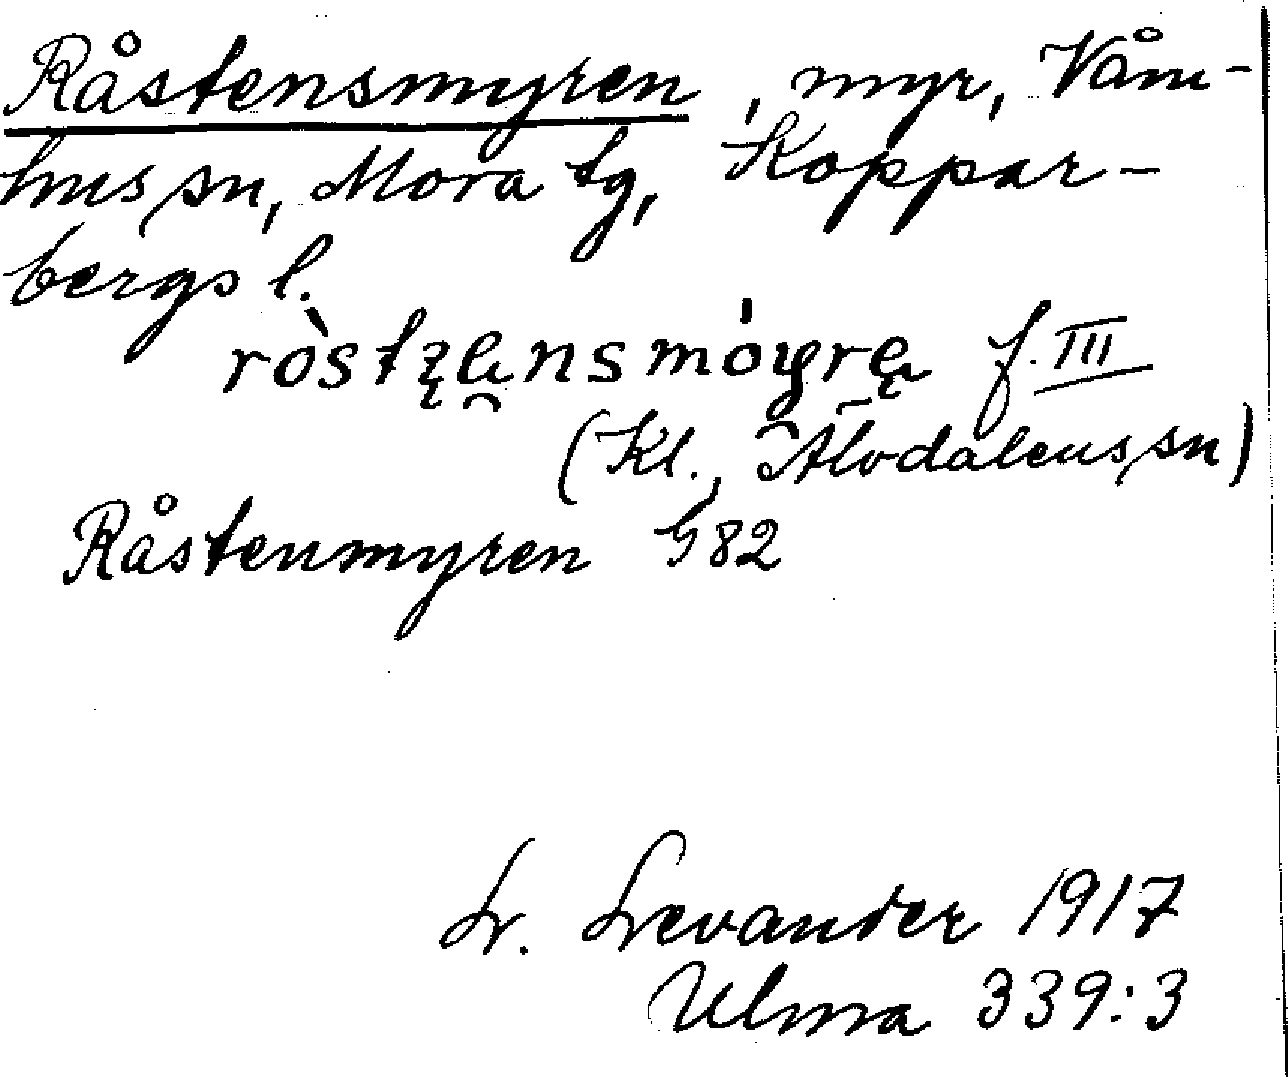 Råstensmyren, myr, Våm-
hus sn, Mora tg, Koppar-
bergs l.
f. III
(Kl., Älvdalens sn)
Råstenmyren G82
L. Levander 1917
Ulma 339:3